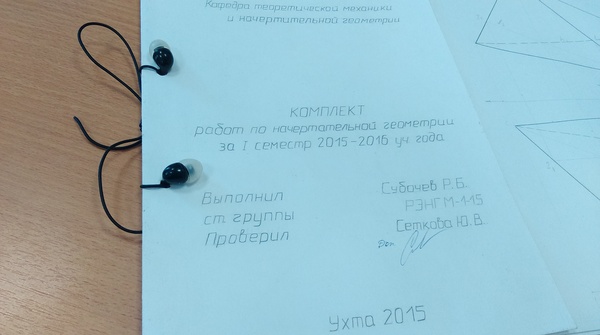 Кафедра теоретической механики
и начертательной геометрии
КОМПЛЕКТ
работ по начертательной геометрии
за I семестр 2015-2016 уч года
Выполнил Субочев Р.Б.
ст. группы РЭНГМ-1-15
Проверил Сеткова Ю.В.
Ухта 2015